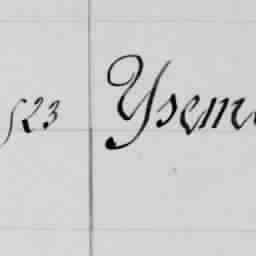 523 Ysem